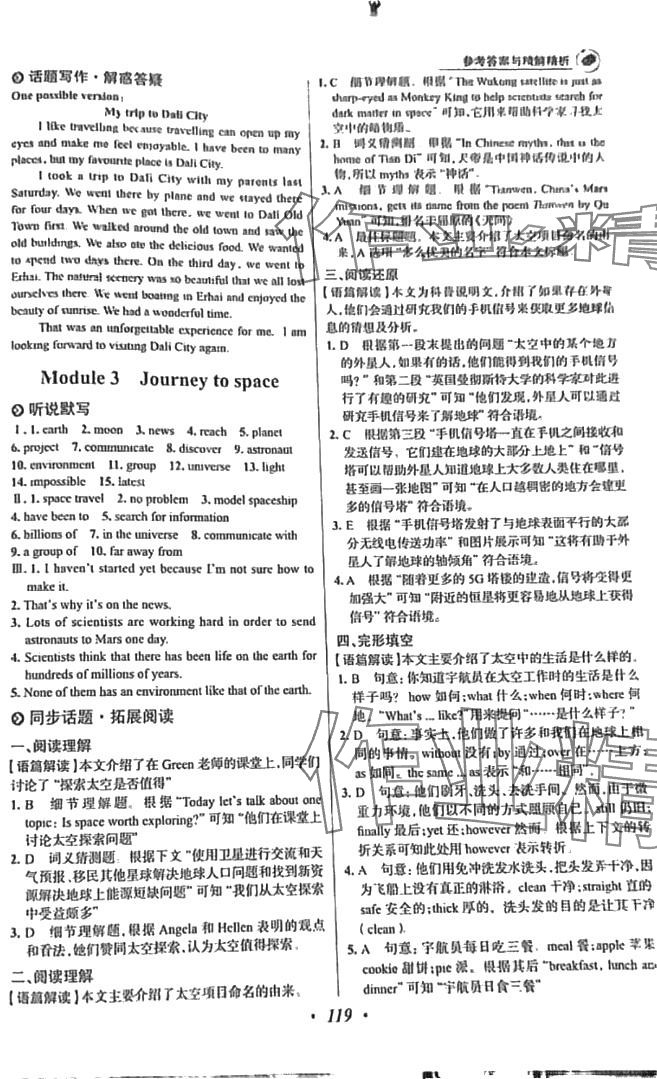 参考答案与精解精析
话题写作·解惑答疑
One possible version:
My trip to Dali City
I like travelling because travelling can open up my
eyes and make me feel enjoyable. I have been to many
places, but my favourite place is Dali City.
I took a trip to Dali City with my parents last
Saturday. We went there by plane and we stayed there
for four days. When we got there, we went to Dali Old
Town first. We walked around the old town and saw the
old buildings. We also ate the delicious food. We wanted
to spend two days there. On the third day, we went to
Erhai. The natural scenery was so beautiful that we all lost
ourselves there. We went boating in Erhai and enjoyed the
beauty of sunrise. We had a wonderful time.
That was an unforgettable experience for me. I am
looking forward to visiting Dali City again.
Module 3 Journey to space
听说默写
Ⅰ. 1. earth 2. moon 3. news 4. reach 5. planet
6. project 7. communicate 8. discover 9. astronaut
10. environment 11. group 12. universe 13. light
14. impossible 15. latest
Ⅱ. 1. space travel 2. no problem 3. model spaceship
4. have been to 5. search for information
6. billions of 7. on the news 8. communicate with
9. a group of 10. far away from
Ⅲ. 1. I haven't started yet because I'm not sure how to
make it.
2. That's why it's on the news.
3. Lots of scientists are working hard in order to send
astronauts to Mars one day.
4. Scientists think that there has been life on the earth for
hundreds of millions of years.
5. None of them has an environment like that of the earth.
同步话题·拓展阅读
一、阅读理解
【语篇解读】本文介绍了在 Green 老师的课堂上,同学们
讨论了“探索太空是否值得”
1. B 细节理解题。根据“Today let's talk about one
topic: Is space worth exploring?”可知“他们在课堂上
讨论太空探索问题”
2. D 词义猜测题。根据下文“使用卫星进行交流和天
气预报,移民其他星球解决地球人口问题和找到新资
源解决地球上能源短缺问题”可知“我们从太空探索
中受益颇多”
3. D 细节理解题。根据 Angela 和 Hellen 表明的观点
和看法,她们赞同太空探索,认为太空值得探索。
二、阅读理解
【语篇解读】本文主要介绍了太空项目命名的由来。
1. C 细节理解题。根据“The Wukong satellite is just as
sharp-eyed as Monkey King to help scientists search for
dark matter in space”可知,它用来帮助科学家寻找太
空中的暗物质。
2. B 词义猜测题。根据“In Chinese myths, this is the
home of Tian Di”可知,天帝是中国神话传说中的人
物,所以 myths 表示“神话”。
3. A 细节理解题。根据“Tianwen, China's Mars
missions, gets its name from the poem Tianwen by Qu
Yuan”可知,组名于屈原的《天问》
4. A 最佳标题题。本文主要介绍了太空项目命名的由
来。A 选项“多么优美的名字”符合本文标题。
三、阅读还原
【语篇解读】本文为科普说明文,介绍了如果存在外星
人,他们会通过研究我们的手机信号来获取更多地球信
息的猜想及分析。
1. D 根据第一段末提出的问题“太空中的某个地方
的外星人,如果有的话,他们能得到我们的手机信号
吗?”和第二段“英国曼彻斯特大学的科学家对此进
行了有趣的研究”可知“他们发现,外星人可以通过
研究手机信号来了解地球”符合语境。
2. C 根据第三段“手机信号塔一直在手机之间接收和
发送信号、它们建在地球的大部分土地上”和“信号
塔可以帮助外星人知道地球上大多数人类住在哪里,
甚至画一张地图”可知“在人口越稠密的地方会建更
多的信号塔”符合语境。
3. E 根据“手机信号塔发射了与地球表面平行的大部
分无线电传送功率”和图片展示可知“这将有助于外
星人了解地球的轴倾角”符合语境。
4. A 根据“随着更多的 5G 塔楼的建造,信号将变得更
加强大”可知“附近的恒星将更容易地从地球上获得
信号”符合语境。
四、完形填空
【语篇解读】本文主要介绍了太空中的生活是什么样的。
1. B 句意:你知道宇航员在太空工作时的生活是什么
样子吗? how 如何;what 什么;when 何时;where 哪
里。“What's ... like?”用来提问“……是什么样子?”
2. D 句意:事实上,他们做了许多和我们在地球上相
同的事情。without 没有;by 通过;over 在……上方;
as 如同。the same ... as 表示“和……相同”。
3. D 句意:他们刷牙、洗头、去洗手间。然而,由于微
重力环境,他们以不同的方式照顾自己。still 仍旧;
finally 最后;yet 还;however 然而。根据上下文的转
折关系可知此处用 however 表示转折。
4. A 句意:他们用免冲洗发水洗头,把头发弄干净,因
为飞船上没有真正的淋浴。clean 干净;straight 直的
safe 安全的;thick 厚的。洗头发的目的是让其干净
5. A 句意:宇航员每日吃三餐。meal 餐;apple 苹果
cookie 甜饼;pie 派。根据其后的“breakfast, lunch an
dinner”可知“宇航员日食三餐”
· 119 ·